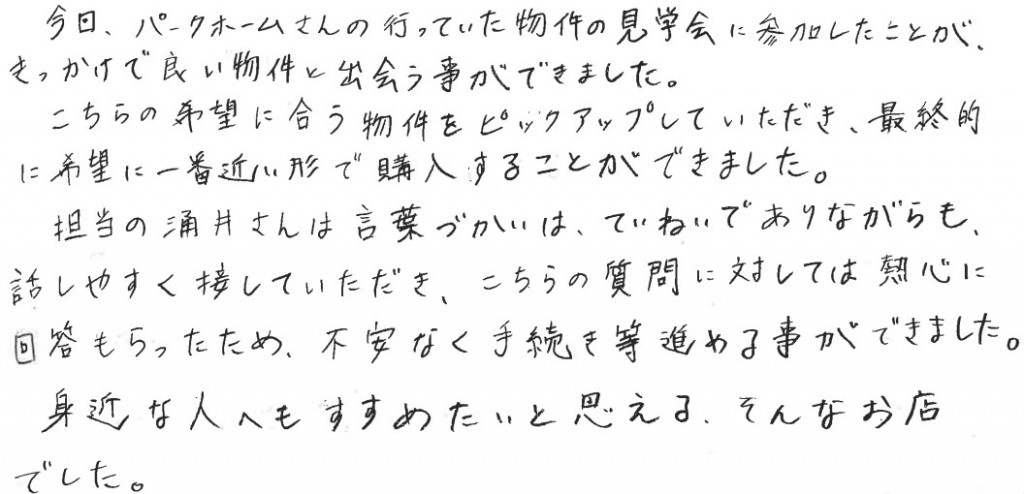 今回、パークホームさんの行っていた物件の見学会に参加したことが、
きっかけで良い物件と出会う事ができました。
こちらの希望に合う物件をピックアップしていただき、最終的
に希望に一番近い形で購入することができました。
担当の涌井さんは言葉づかいは、ていねいでありながらも、
話しやすく接していただき、こちらの質問に対しては熱心に
回答もらったため、不安なく手続き等進める事ができました。
身近な人へもすすめたいと思える、そんなお店
でした。